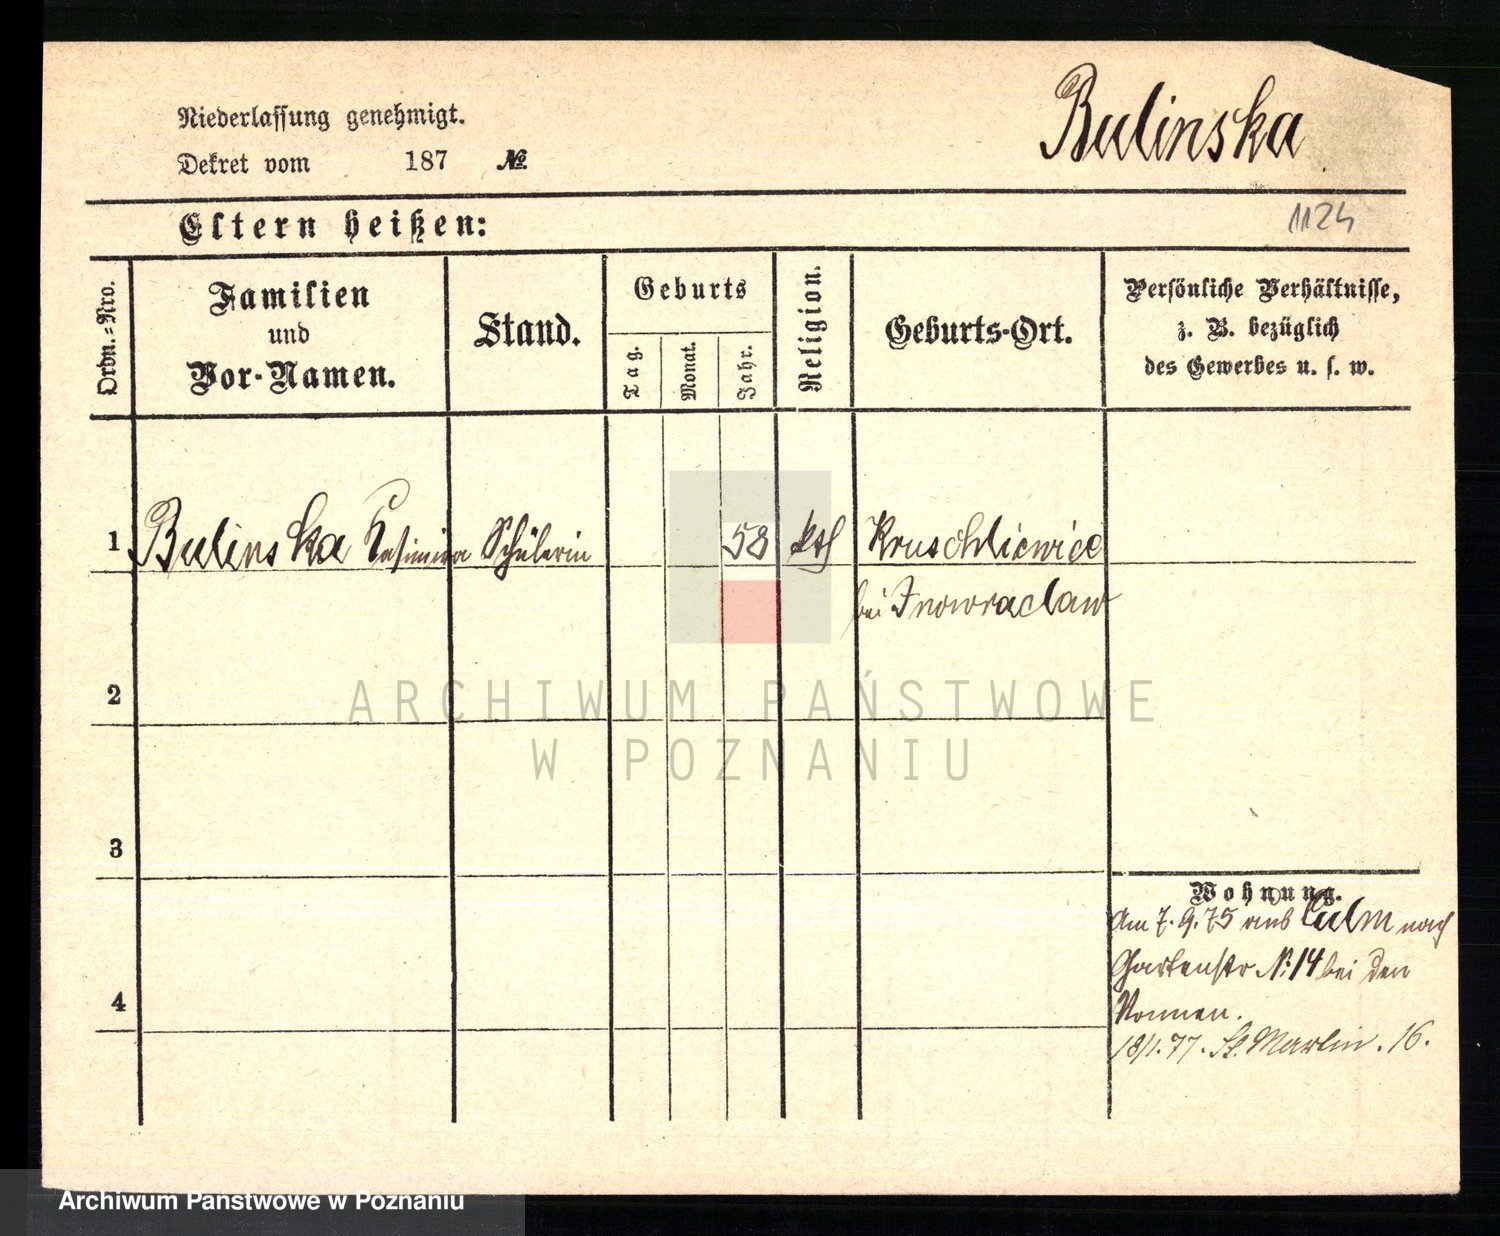 Niederlassung genehmigt.
Bulinska
Dekret vom 187 №
Eltern heißen:
1124
Ordn.=Nro.
Familien
und
Vor-Namen.
Stand.
Geburts
Tag.
Monat.
Jahr.
Religion.
Geburts-Ort.
Persönliche Verhältnisse,
z. B. bezüglich
des Gewerbes u. s. w.
1 Bulinska Casimira Schülerin 58 kth Kruschliewice
bei Inowraclaw
2
ARCHIWUM PAŃSTWOWE
W POZNANIU
3
Wohnung.
Am 7.9.75 aus Culm nach
Gartenstr № 14 bei den
4
Nonnen.
18/1.77. St. Martin. 16.
Archiwum Państwowe w Poznaniu